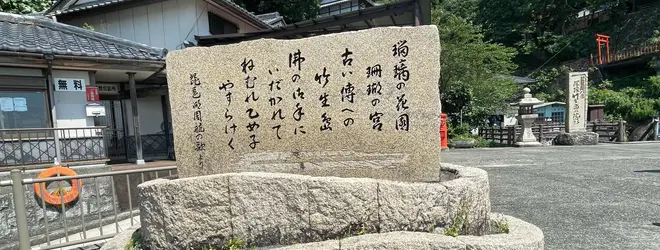 瑠璃の花園
珊瑚の宮
古い傳への
竹生島
佛の御手に
いだかれて
ねむれ乙女子
やすらけく
琵琶湖周航の歌より
無料